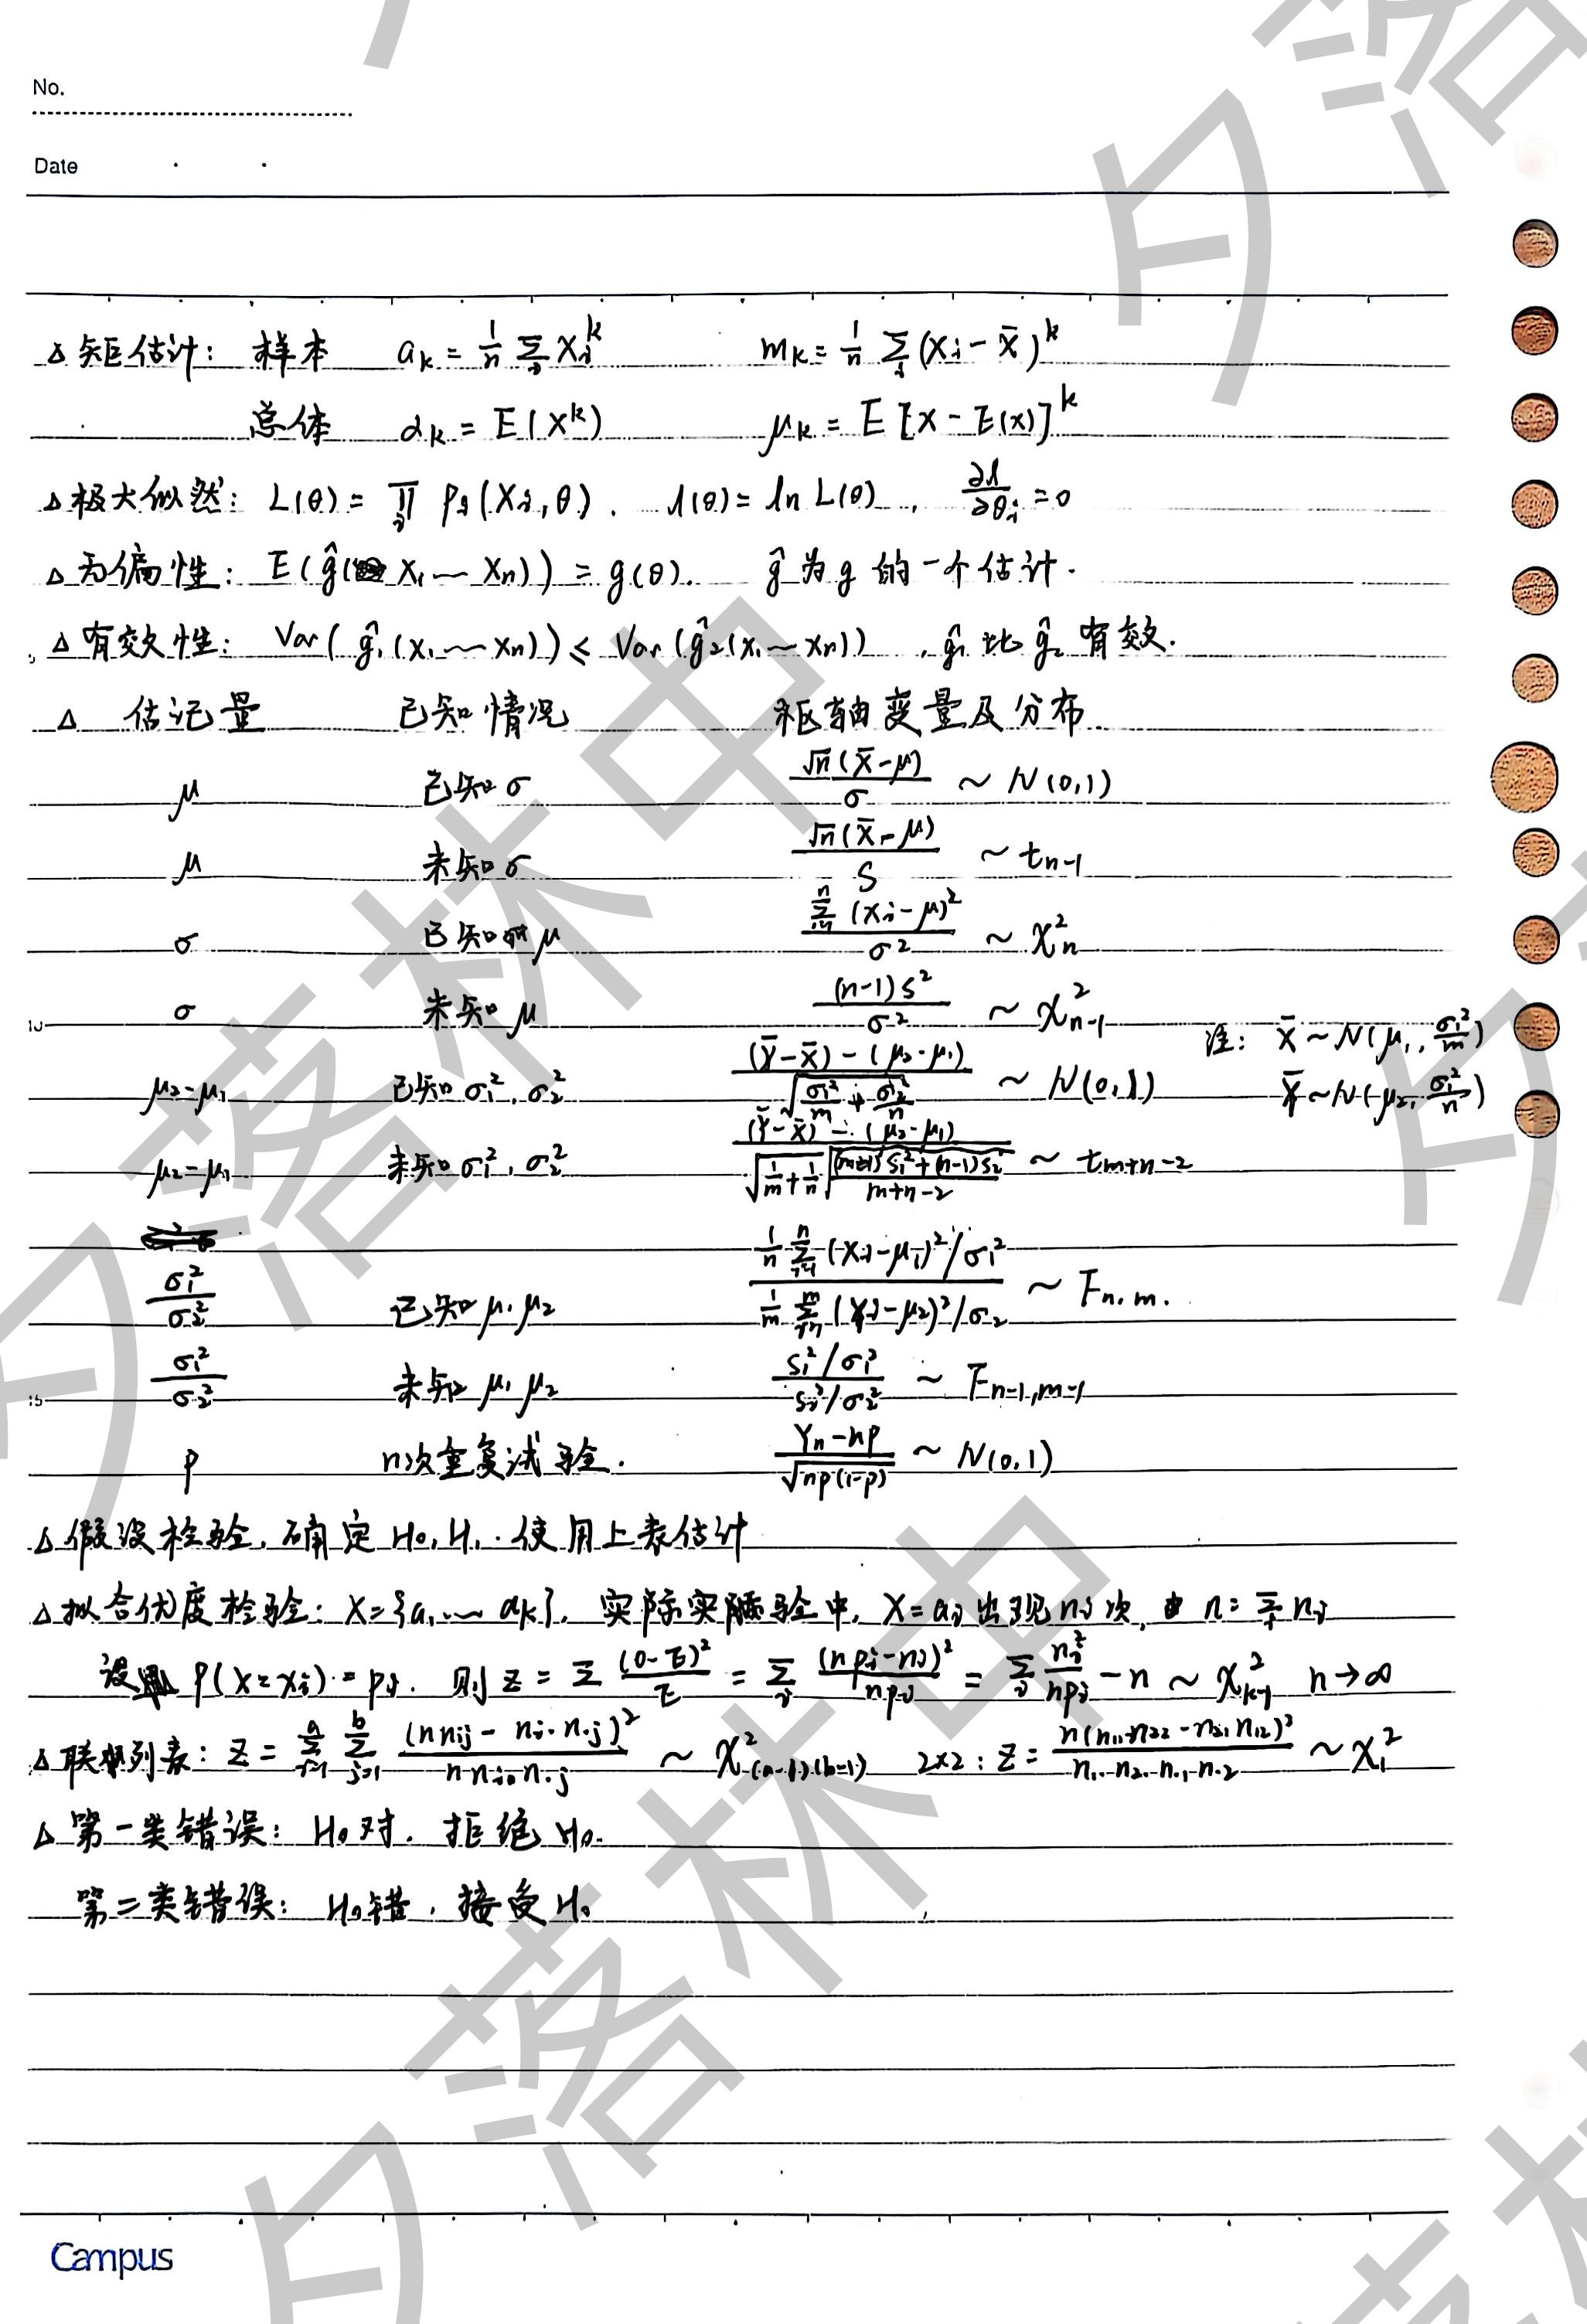 No.
Date
△矩估计: 样本 aₖ = 1/n Σᵢ Xᵢᵏ mₖ = 1/n Σᵢ (Xᵢ - X̄)ᵏ
总体 αₖ = E(Xᵏ) μₖ = E[X - E(X)]ᵏ
△极大似然: L(θ) = ∏ᵢ Pᵢ(Xᵢ, θ). l(θ) = ln L(θ), ∂l/∂θᵢ = 0
△无偏性: E(ĝ(X₁~Xₙ)) = g(θ). ĝ为g的一个估计.
△有效性: Var(ĝ₁(X₁~Xₙ)) ≤ Var(ĝ₂(X₁~Xₙ)), ĝ₁比ĝ₂有效.
△ 估记量 已知情况 枢轴变量及分布
μ 已知σ √n(X̄-μ)/σ ~ N(0,1)
μ 未知σ √n(X̄-μ)/S ~ tₙ₋₁
σ 已知μ Σᵢ₌₁ⁿ(Xᵢ-μ)²/σ² ~ χ²ₙ
σ 未知μ (n-1)S²/σ² ~ χ²ₙ₋₁
注: X̄ ~ N(μ₁, σ₁²/m)
μ₂-μ₁ 已知σ₁², σ₂² ((Ȳ-X̄)-(μ₂-μ₁))/√(σ₁²/m + σ₂²/n) ~ N(0,1) Ȳ ~ N(μ₂, σ₁²/n)
μ₂-μ₁ 未知σ₁², σ₂² ((Ȳ-X̄)-(μ₂-μ₁))/(√(1/m+1/n) √(((m-1)S₁²+(n-1)S₂²)/(m+n-2))) ~ tₘ₊ₙ₋₂
σ₁²/σ₂² 已知μ₁ μ₂ (1/n Σᵢ₌₁ⁿ(Xᵢ-μ₁)²/σ₁²)/(1/m Σᵢ₌₁ᵐ(Yᵢ-μ₂)²/σ₂) ~ Fₙ,ₘ.
σ₁²/σ₂² 未知μ₁ μ₂ (S₁²/σ₁²)/(S₂²/σ₂²) ~ Fₙ₋₁,ₘ₋₁
P n次重复试验. (Yₙ-np)/√(np(1-p)) ~ N(0,1)
△假设检验, 确定H₀, H₁. 使用上表估计
△拟合优度检验: X={a₁~aₖ}, 实际实验中, X=aᵢ出现nᵢ次, n=Σᵢnᵢ
设 P(X=xᵢ)=Pᵢ. 则Z = Σ (O-E)²/E = Σᵢ (npᵢ-nᵢ)²/npᵢ = Σᵢ nᵢ²/npᵢ - n ~ χ²ₖ₋₁ n→∞
△联列表: Z = Σᵢ₌₁ᵃ Σⱼ₌₁ᵇ (n nᵢⱼ - nᵢ. n.ⱼ)²/(n nᵢ. n.ⱼ) ~ χ²₍ₐ₋₁₎₍b₋₁₎ 2×2: Z = n(n₁₁n₂₂-n₂₁n₁₂)²/(n₁. n₂. n.₁ n.₂) ~ χ₁²
△第一类错误: H₀对. 拒绝H₀.
第二类错误: H₀错, 接受H₀
Campus
夕落林中
夕落林中